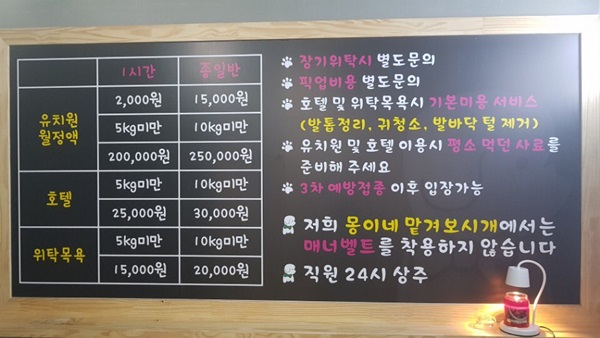 1시간 종일반
유치원
월정액
2,000원 15,000원
5kg미만 10kg미만
200,000원 250,000원
호텔
5kg미만 10kg미만
25,000원 30,000원
위탁목욕
5kg미만 10kg미만
15,000원 20,000원
장기위탁시 별도문의
픽업비용 별도문의
호텔 및 위탁목욕시 기본미용 서비스
(발톱정리, 귀청소, 발바닥 털 제거)
유치원 및 호텔 이용시 평소 먹던 사료를
준비해 주세요
3차 예방접종 이후 입장가능
저희 몽이네 맡겨보시개에서는
매너벨트를 착용하지 않습니다
직원 24시 상주